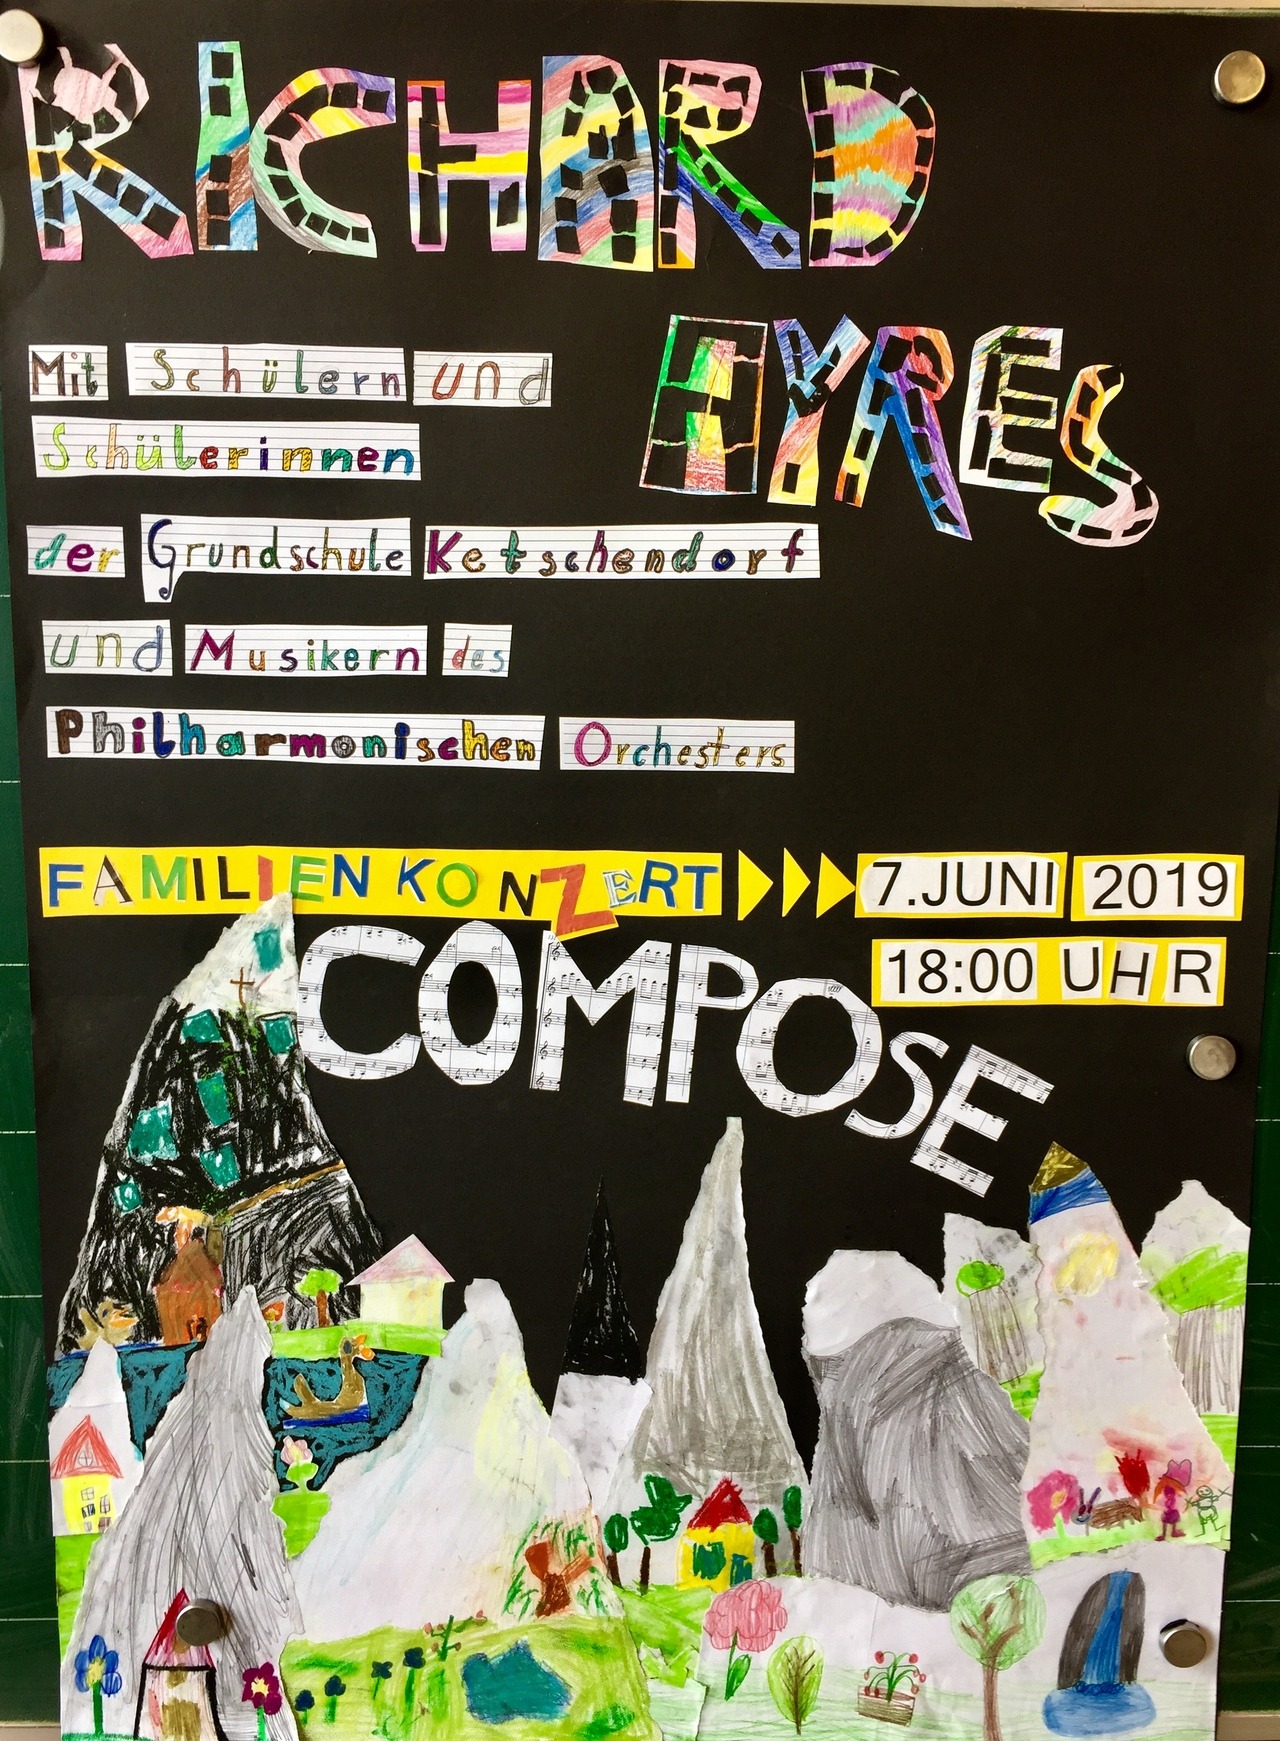 RICHARD
EYRES
Mit Schülern und
Schülerinnen
der Grundschule Ketschendorf
und Musikern des
Philharmonischen Orchesters
FAMILIENKONZERT 7.JUNI 2019
18:00 UHR
COMPOSE